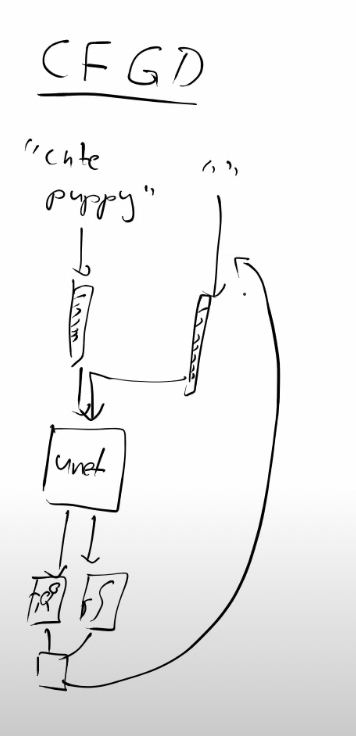 CFGD
"cute
puppy"
" "
unet